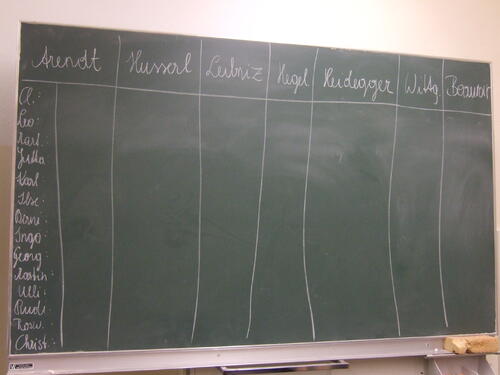 Arendt Husserl Leibniz Hegel Heidegger Wittg. Beauvoir
A.:
Leo:
Jutta
Karl
Ilse:
Ingo:
Georg:
Ulli:
Rudi:
Christ.: